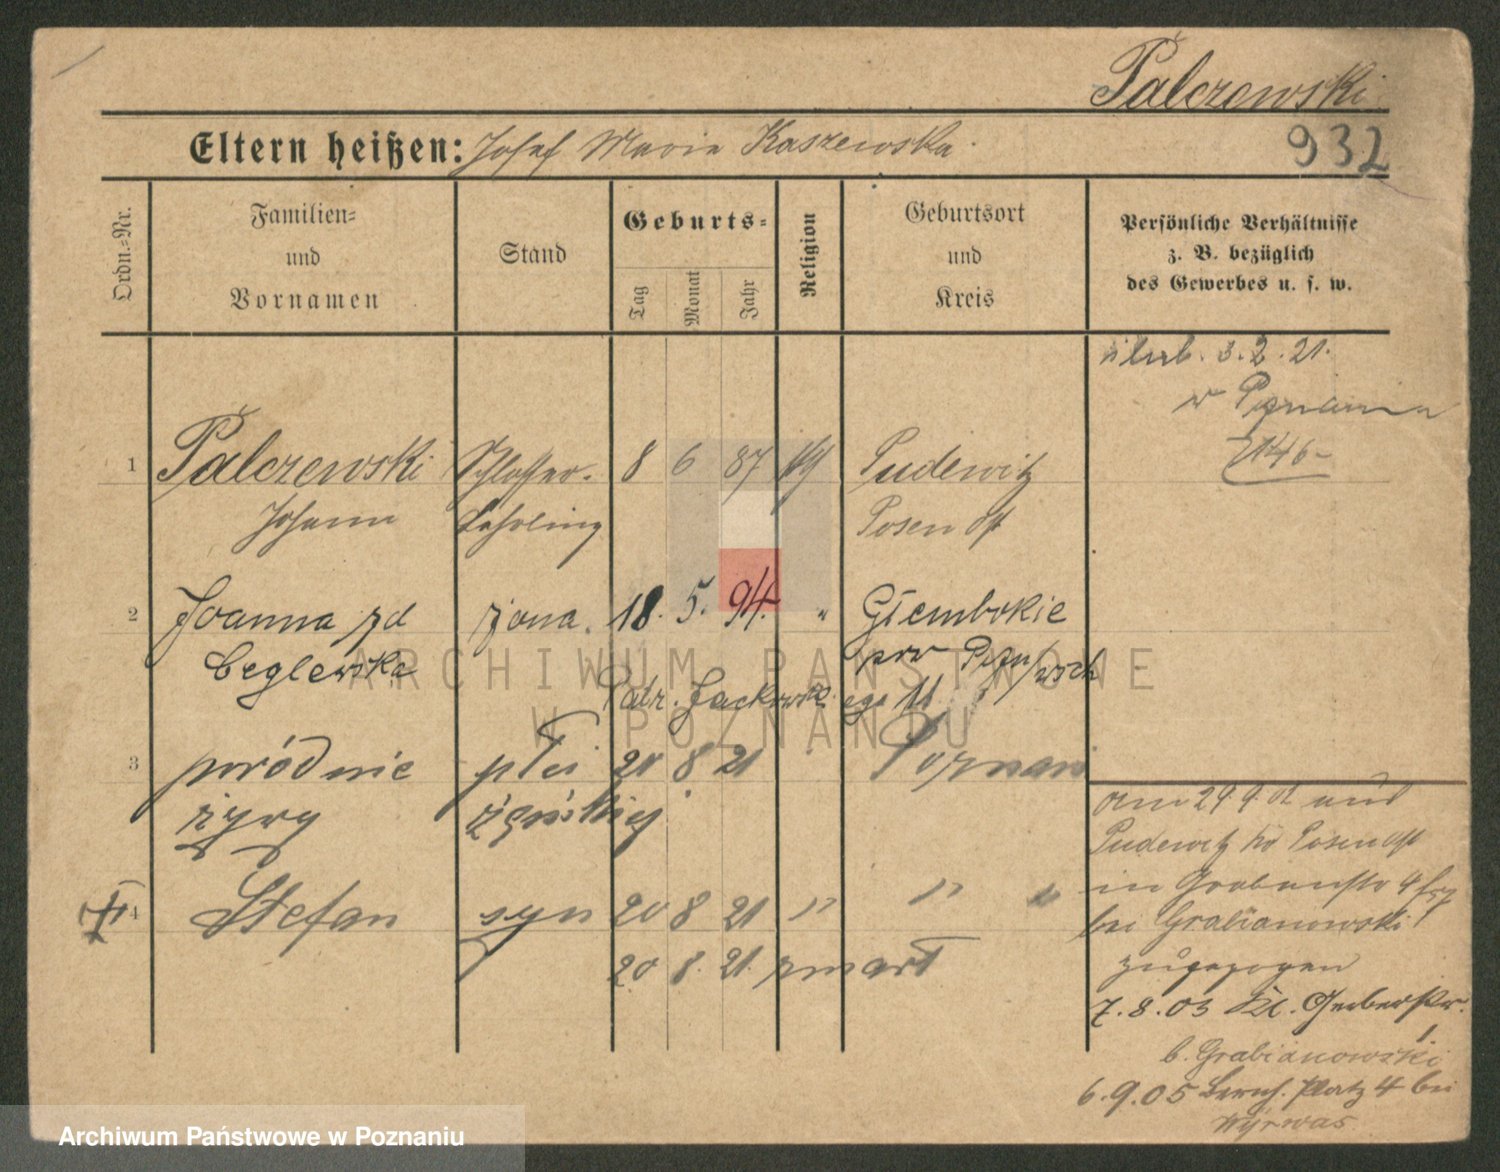 Palczewski
Eltern heißen: Josef Maria Kaszewska
932
Ordn.-Nr.
Familien-
und
Vornamen
Stand
Geburts-
Tag
Monat
Jahr
Religion
Geburtsort
und
Kreis
Persönliche Verhältnisse
z. B. bezüglich
des Gewerbes u. s. w.
ślub. 3.2.21.
w Poznaniu
1 Palczewski Schlosser- 8 6 87 Pudewitz
Johann Lehrling Posen Ost
2 Joanna zd żona. 18. 5. 94. " Głembokie
Ceglewska pow Pozn/wsch
Patr. Jackowskiego 11
3 poródnie płci 20 8 21 Poznań
żywy żeńskiej
4 Stefan syn 20 8 21 " " "
20 8. 21. zmarł
am 29.9.02 aus
Pudewitz Kr Posen Ost
in Grabenstr 4
bei Grabianowski
zugezogen
7.8.03 Kl. Gerberstr.
b. Grabianowski
6.9.05 Platz 4 bei
Wyrwas
ARCHIWUM PAŃSTWOWE
W POZNANIU
Archiwum Państwowe w Poznaniu